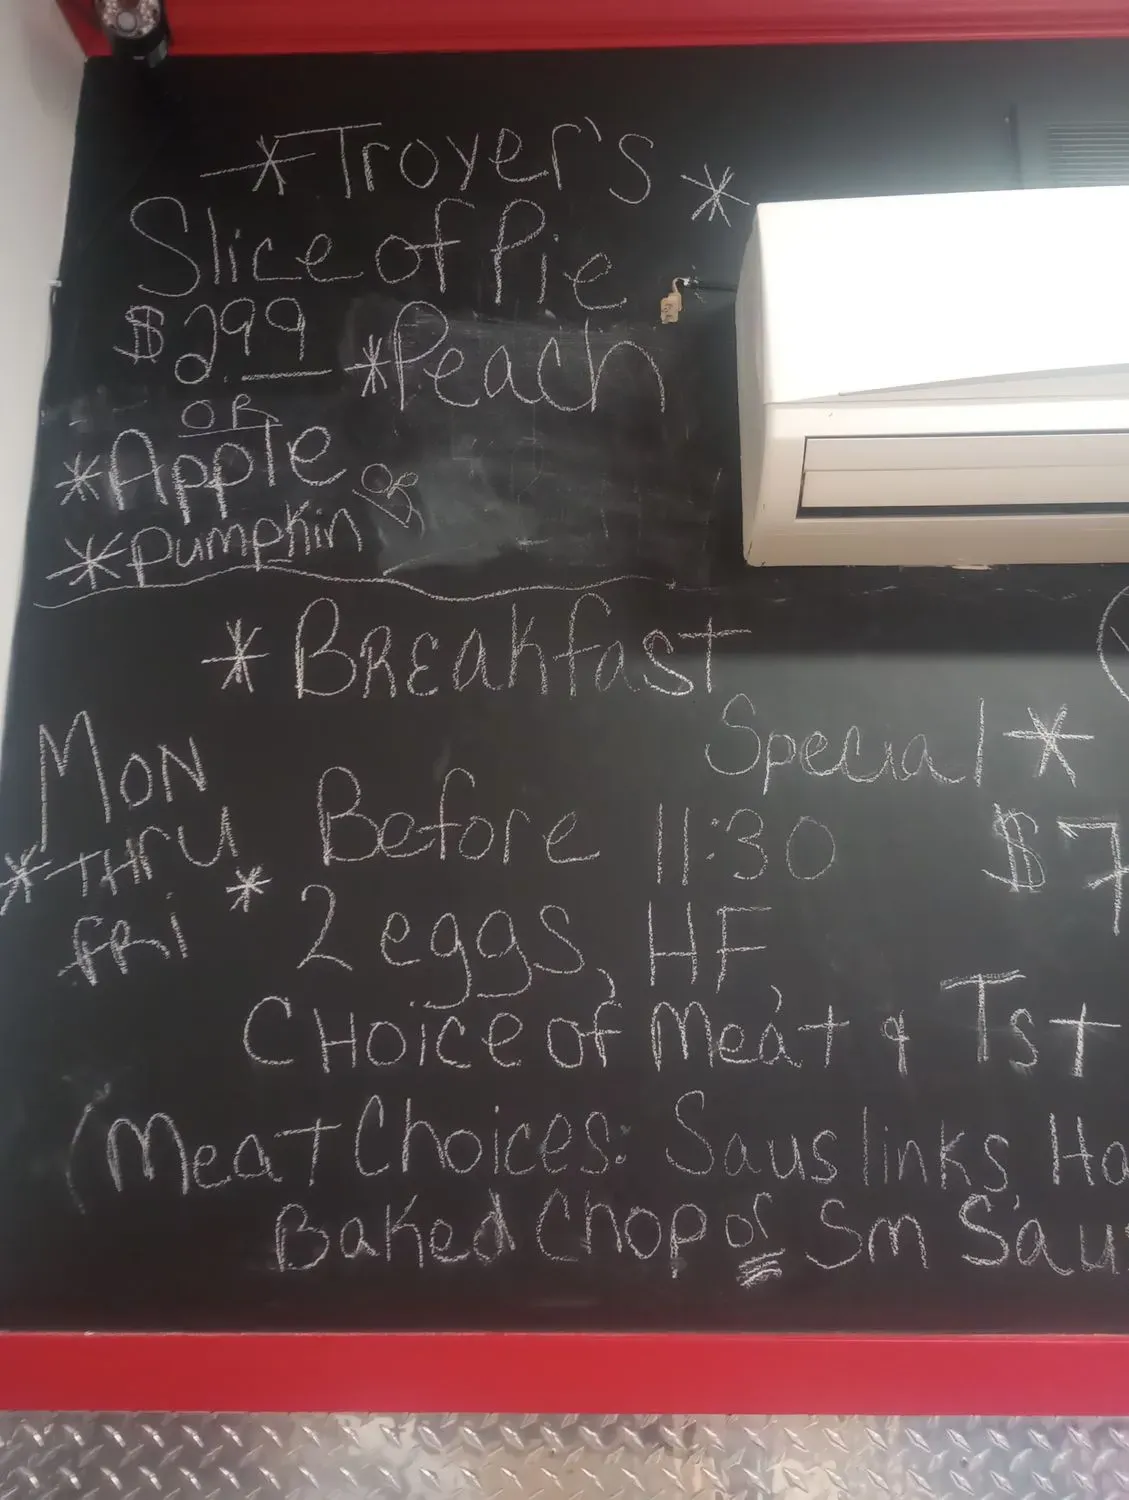 *Troyer's *
Slice of Pie
$2.99 *Peach
OR
*Apple or
*Pumpkin
*BREakfast
Special *
MON
*THRU *
FRi
Before 11:30 $7
2 eggs, HF
CHOice of Meat & Tst
(Meat Choices: Saus links, Ha
Baked Chop or Sm Saus